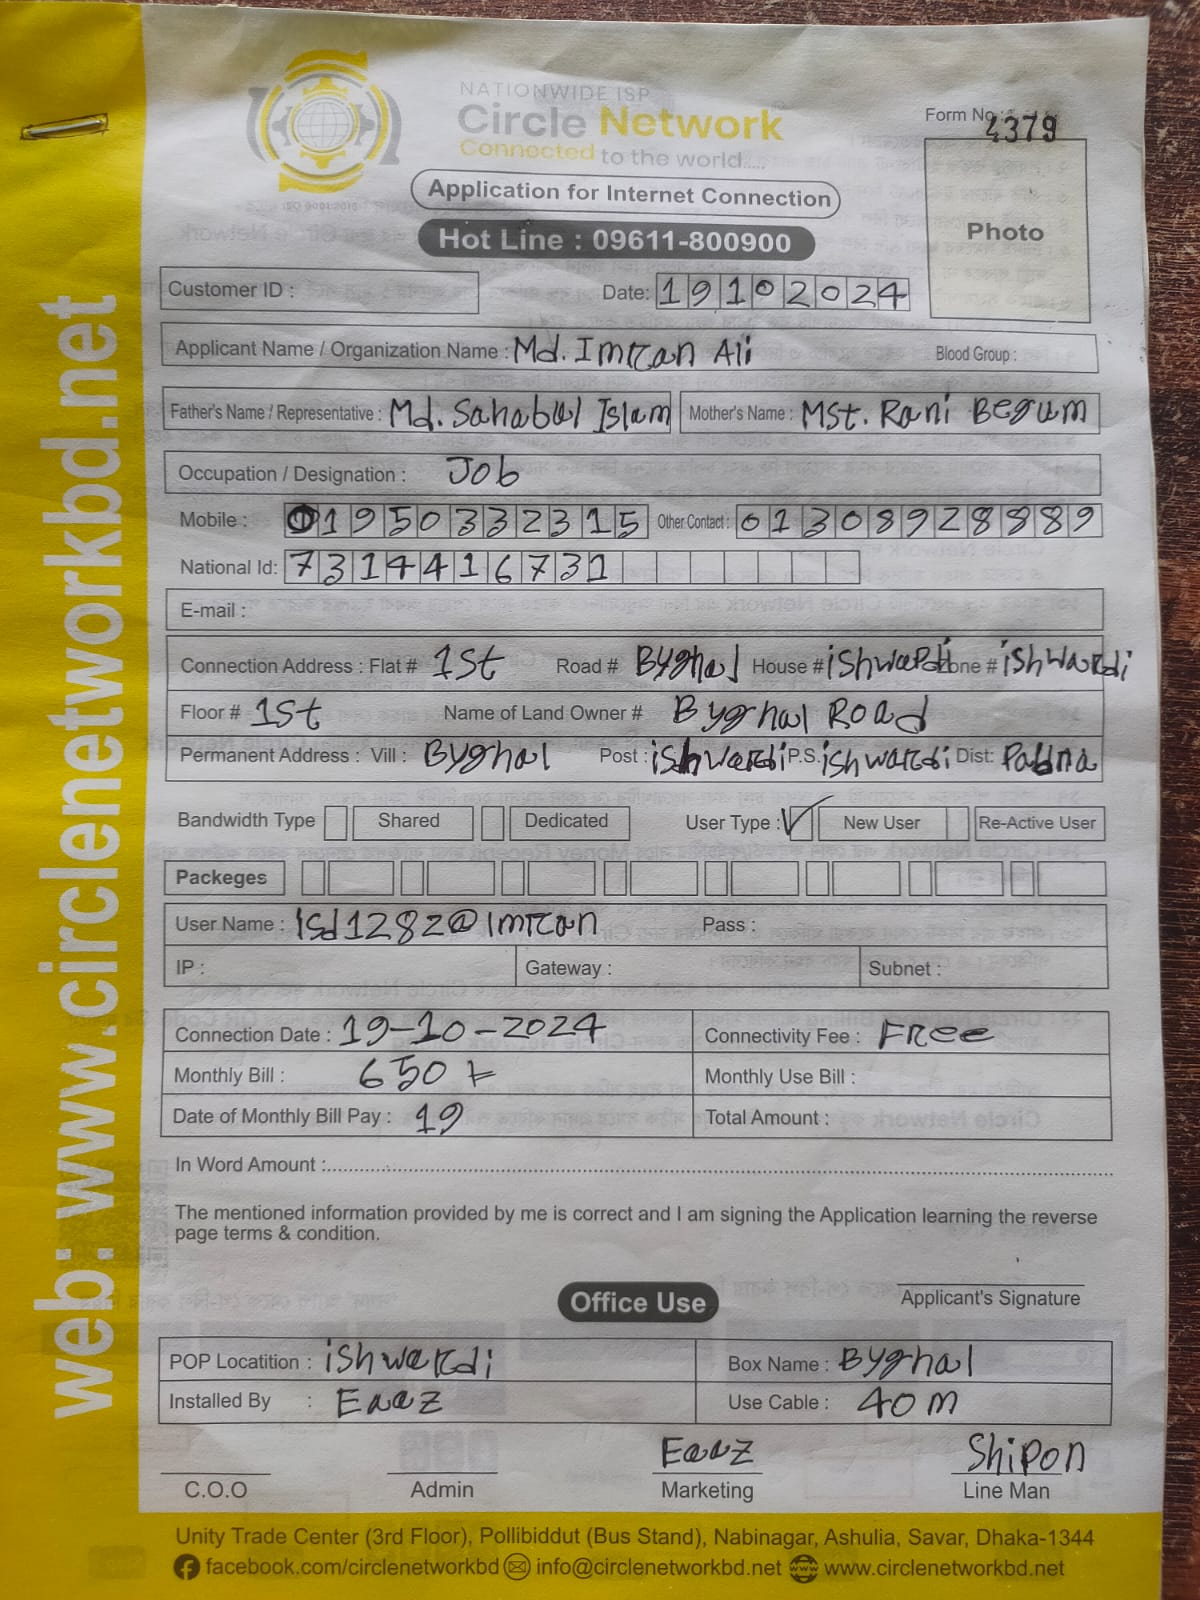 NATIONWIDE ISP
Circle Network
Connected to the world.....
Form No. 4379
Application for Internet Connection
Hot Line : 09611-800900
Photo
Customer ID : Date: 19102024
Applicant Name / Organization Name : Md. Imran Ali Blood Group :
Father's Name / Representative : Md. Sahabul Islam Mother's Name : MSt. Rani Begum
Occupation / Designation : Job
Mobile : 01950332315 Other Contact : 01308928889
National Id: 7314416731
E-mail :
Connection Address : Flat # 1St Road # Byghal House # ishwardi Zone # ishwardi
Floor # 1St Name of Land Owner # Byghal Road
Permanent Address : Vill : Byghal Post : ishwardi P.S. ishwardi Dist: Pabna
Bandwidth Type Shared Dedicated User Type : ✓ New User Re-Active User
Packeges
User Name : isd1282@imran Pass :
IP : Gateway : Subnet :
Connection Date : 19-10-2024 Connectivity Fee : Free
Monthly Bill : 650 Monthly Use Bill :
Date of Monthly Bill Pay : 19 Total Amount :
In Word Amount :
The mentioned information provided by me is correct and I am signing the Application learning the reverse
page terms & condition.
Applicant's Signature
Office Use
POP Locatition : ishwardi Box Name : Byghal
Installed By : Eaaz Use Cable : 40 M
Eaaz Shipon
C.O.O Admin Marketing Line Man
Unity Trade Center (3rd Floor), Pollibiddut (Bus Stand), Nabinagar, Ashulia, Savar, Dhaka-1344
facebook.com/circlenetworkbd info@circlenetworkbd.net www.circlenetworkbd.net
web: www.circlenetworkbd.net